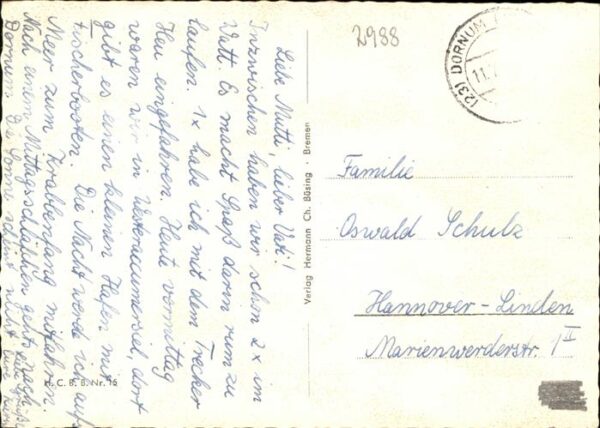 2988
(23) DORNUM
11.
Liebe Mutti, lieber Vati!
Inzwischen haben wir schon 2x im
Watt. Es macht Spaß darin rum zu
laufen. 1x habe ich mit dem Trecker
Heu eingefahren. Heute vormittag
waren wir in Westeraccumersiel, dort
gibt es einen kleinen Hafen mit
Fischerbooten. Die Nacht werde ich auf
Meer zum Krabbenfang mitfahren.
Nach einem Mittagsschläfchen geht nach
Dornum. Die Sonne scheint
Verlag Hermann Ch. Büsing Bremen
H. C. B. B. Nr. 15
Familie
Oswald Schulz
Hannover-Linden
Marienwerderstr. 1 II